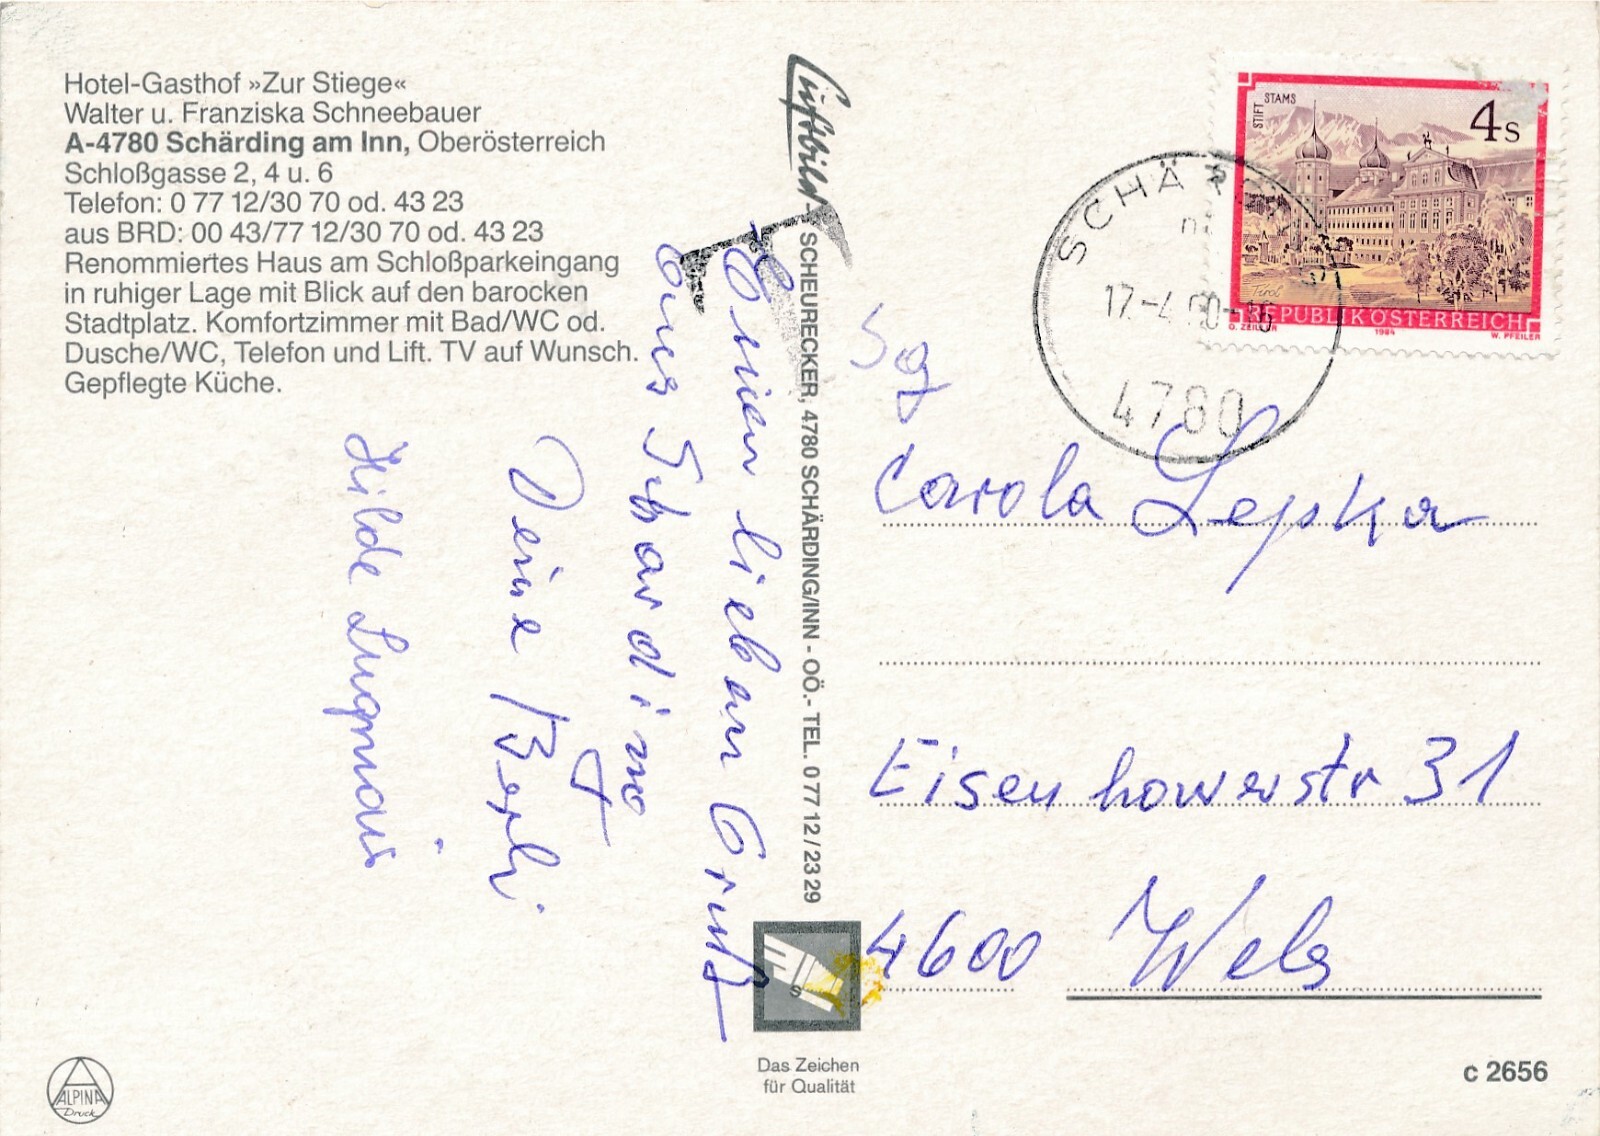 Hotel-Gasthof »Zur Stiege«
Walter u. Franziska Schneebauer
A-4780 Schärding am Inn, Oberösterreich
Schloßgasse 2, 4 u. 6
Telefon: 0 77 12/30 70 od. 43 23
aus BRD: 00 43/77 12/30 70 od. 43 23
Renommiertes Haus am Schloßparkeingang
in ruhiger Lage mit Blick auf den barocken
Stadtplatz. Komfortzimmer mit Bad/WC od.
Dusche/WC, Telefon und Lift. TV auf Wunsch.
Gepflegte Küche.
Einen lieben Gruß
aus Schärding
Deine
Hilde
Luftbild
SCHEURECKER, 4780 SCHÄRDING/INN - OÖ.- TEL. 0 77 12 / 23 29
STIFT STAMS
4 S
Tirol
REPUBLIK ÖSTERREICH
O. ZEILLER 1984 W. PFEILER
SCHÄRDING
17.-4.90-16
4780
Carola Lepka
Eisenhowerstr 31
4600 Wels
S
Das Zeichen
für Qualität
ALPINA
Druck
c 2656